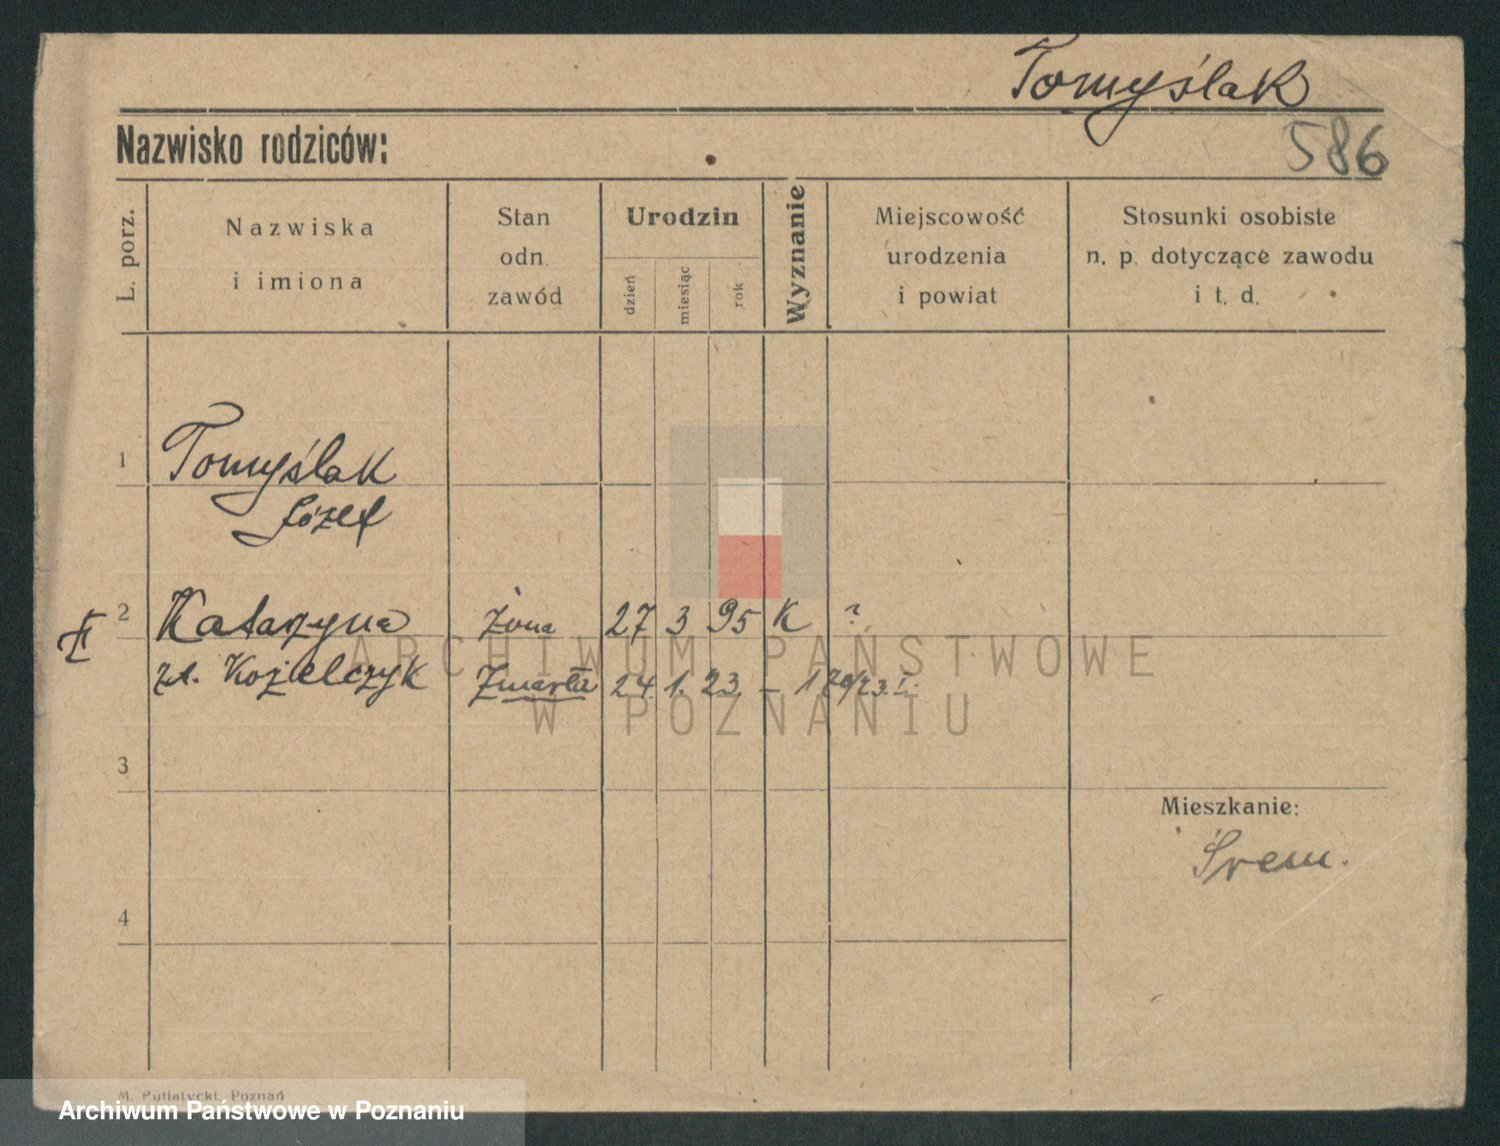 Tomyślak
586
Nazwisko rodziców:
L. porz.
Nazwiska
i imiona
Stan
odn.
zawód
Urodzin
dzień
miesiąc
rok
Wyznanie
Miejscowość
urodzenia
i powiat
Stosunki osobiste
n. p. dotyczące zawodu
i t. d.
1 Tomyślak
Józef
2 Katarzyna żona 27 3 95 K ?
Kozielczyk Zmarła 24. 1. 23. –
ARCHIWUM PAŃSTWOWE
W POZNANIU
3
Mieszkanie:
Śrem.
4
M. Putiatycki, Poznań
Archiwum Państwowe w Poznaniu